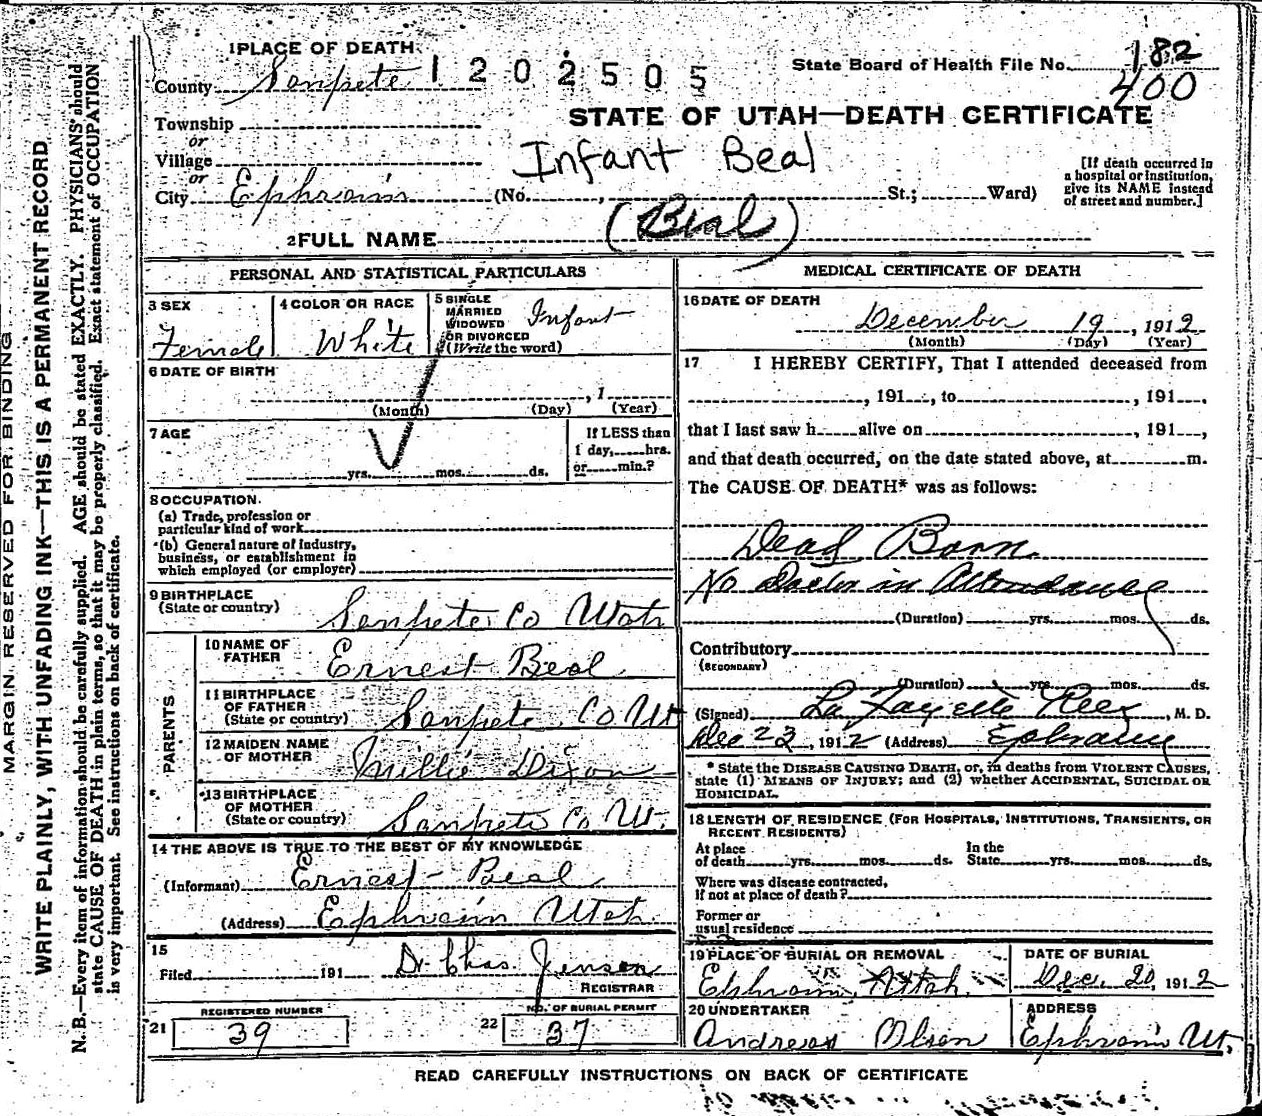 MARGIN RESERVED FOR BINDING
WRITE PLAINLY, WITH UNFADING INK—THIS IS A PERMANENT RECORD
N. B.—Every item of information should be carefully supplied. AGE should be stated EXACTLY. PHYSICIANS should
state CAUSE OF DEATH in plain terms, so that it may be properly classified. Exact statement of OCCUPATION
is very important. See instructions on back of certificate.
1 PLACE OF DEATH
County Sanpete 1202505
State Board of Health File No. 182
400
STATE OF UTAH—DEATH CERTIFICATE
Township
or
Village
or
City Ephraim (No. , St.; Ward)
Infant Beal
[If death occurred in
a hospital or institution,
give its NAME instead
of street and number.]
2 FULL NAME (Beal)
PERSONAL AND STATISTICAL PARTICULARS
3 SEX Female
4 COLOR OR RACE White
5 SINGLE
MARRIED
WIDOWED
OR DIVORCED
(Write the word) Infant
6 DATE OF BIRTH
, 1
(Month) (Day) (Year)
7 AGE
yrs. mos. ds.
If LESS than
1 day, hrs.
or min.?
8 OCCUPATION.
(a) Trade, profession or
particular kind of work
(b) General nature of industry,
business, or establishment in
which employed (or employer)
9 BIRTHPLACE
(State or country) Sanpete Co Utah
PARENTS
10 NAME OF
FATHER Ernest Beal
11 BIRTHPLACE
OF FATHER
(State or country) Sanpete Co Ut
12 MAIDEN NAME
OF MOTHER Millie Dixon
13 BIRTHPLACE
OF MOTHER
(State or country) Sanpete Co Ut.
14 THE ABOVE IS TRUE TO THE BEST OF MY KNOWLEDGE
(Informant) Ernest Beal
(Address) Ephraim Utah.
15
Filed 191 Dr Chas. Jensen
REGISTRAR
REGISTERED NUMBER
21 39
NO. OF BURIAL PERMIT
22 37
MEDICAL CERTIFICATE OF DEATH
16 DATE OF DEATH
December 19, 1912
(Month) (Day) (Year)
17 I HEREBY CERTIFY, That I attended deceased from
, 191 , to , 191 ,
that I last saw h alive on , 191 ,
and that death occurred, on the date stated above, at m.
The CAUSE OF DEATH* was as follows:
Dead Born.
No Doctor in Attendance
(Duration) yrs. mos. ds.
Contributory
(SECONDARY)
(Duration) yrs. mos. ds.
(Signed) La Fayette Rees, M. D.
Dec 23, 1912 (Address) Ephraim
* State the DISEASE CAUSING DEATH, or, in deaths from VIOLENT CAUSES,
state (1) MEANS OF INJURY; and (2) whether ACCIDENTAL, SUICIDAL OR
HOMICIDAL.
18 LENGTH OF RESIDENCE (FOR HOSPITALS, INSTITUTIONS, TRANSIENTS, OR
RECENT RESIDENTS)
At place
of death yrs. mos. ds. In the
State yrs. mos. ds.
Where was disease contracted,
If not at place of death?
Former or
usual residence
19 PLACE OF BURIAL OR REMOVAL
Ephraim, Utah.
DATE OF BURIAL
Dec. 20, 1912
20 UNDERTAKER
Andreas Olsen
ADDRESS
Ephraim Ut.
READ CAREFULLY INSTRUCTIONS ON BACK OF CERTIFICATE